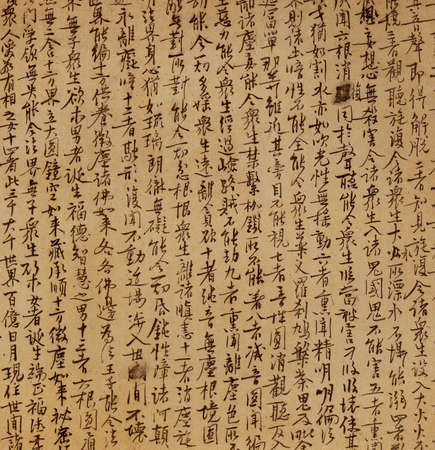 其音聲即得解脫二者知見旋復令諸眾生設入大火火
能燒三者觀聽旋復令諸眾生大水所漂水不能溺四者
妄想心無殺害令諸眾生入諸鬼國鬼不能害五者熏聞
聞六根消復同於聲聽能令眾生臨當被害刀段段壞使其
戈猶如割水亦如吹光性無搖動六者聞熏精明明徧法
界則諸幽暗性不能全能令眾生藥叉羅剎鳩槃茶鬼及毗舍
遮富單那等雖近其旁目不能視七者音性圓消觀聽返入
離諸塵妄能令眾生禁繫枷鎖所不能著八者滅音圓聞徧
生慈力能令眾生經過險路賊不能劫九者熏聞離塵色所不
劫能令一切多婬眾生遠離貪欲十者純音無塵根境圓
融無對所對能令一切忿恨眾生離諸瞋恚十一者消塵旋
明法界身心猶如琉璃朗徹無礙能令一切昏鈍性障諸阿顛
迦永離癡暗十二者融形復聞不動道場涉入世間不壞
世界能徧十方供養微塵諸佛如來各各佛邊為法王子能令法
界無子眾生欲求男者誕生福德智慧之男十三者六根圓通
明照無二含十方界立大圓鏡空如來藏承順十方微塵如來祕密法
門受領無失能令法界無子眾生欲求女者誕生端正福德柔
眾人愛敬有相之女十四者此三千大千世界百億日月現住世間諸